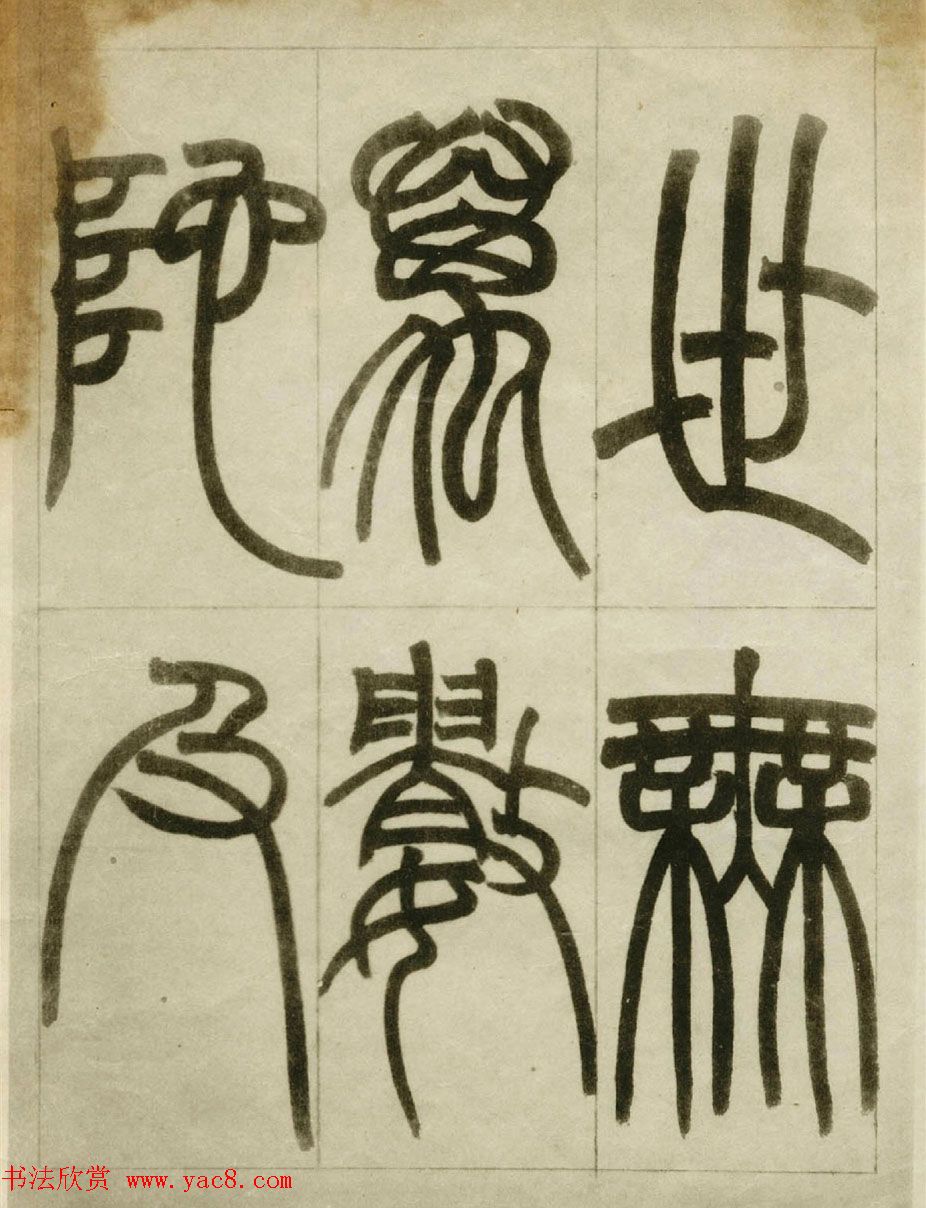 世無
萬數
阤及
书法欣赏 www.yac8.com